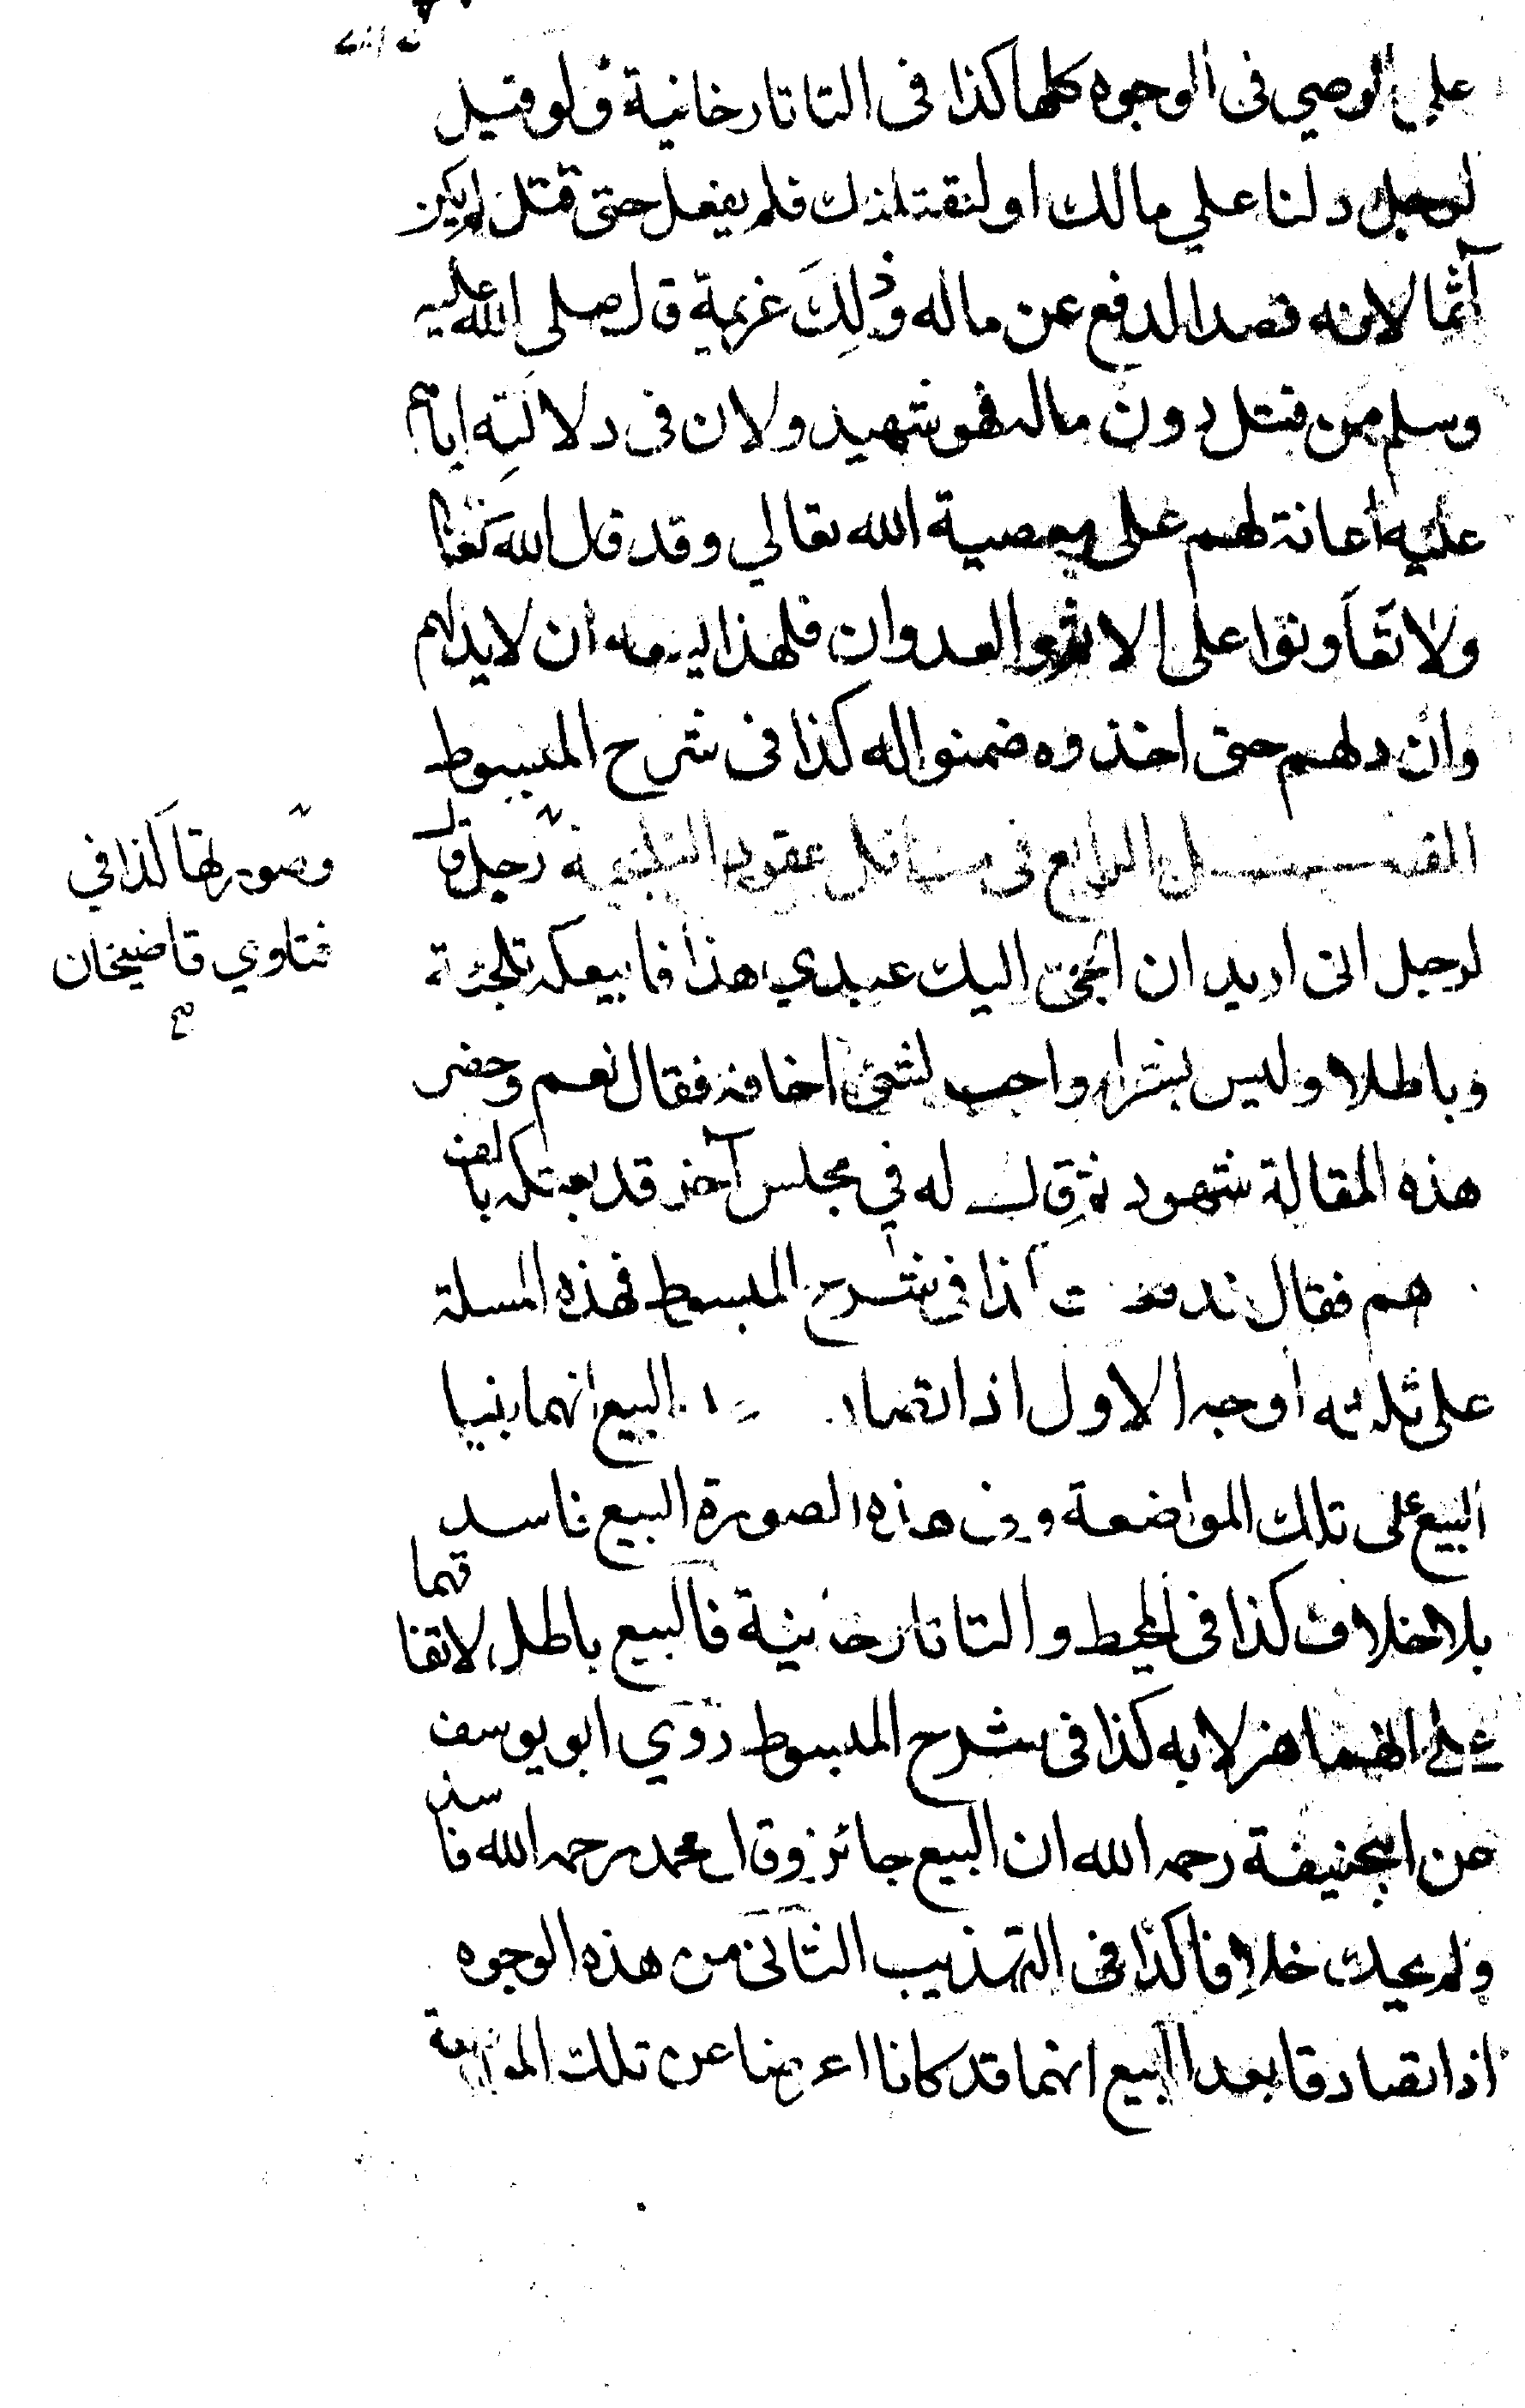 على الوصي في الوجوه كلها كذا في التاتارخانية ولو قيل
لرجل دلنا علي مالك او لنقتلنك فلم يفعل حتى قتل لم يكن
آثما لانه قصد الدفع عن ماله وذلك عزيمة قال صلى الله عليه
وسلم من قتل دون ماله فهو شهيد ولان في دلالته اياهم
عليه اعانة لهم على معصية الله تعالي وقد قال الله تعالى
ولا تعاونوا على الاثم والعدوان فلهذا يسعه ان لا يدلهم
وان دلهم حتى اخذوه ضمنوا له كذا في شرح المبسوط
الفصل الرابع في مسائل عقود التلجية رجل قال
وصورتها كذا في
فتاوي قاضيخان
صح
لرجل اني اريد ان الجئ اليك عبدي هذا فابيعكه تلجئة
وباطلا وليس بشراء واجب لشئ اخافه فقال نعم وحضر
هذه المقالة شهود ثم قال له في مجلس آخر قد بعتكه بالف
هم فقال قد كذا في شرح المبسوط فهذه المسلة
على ثلاثه اوجه الاول اذا تصاد البيع انهما بنيا
البيع على تلك المواضعة وفي هذه الصورة البيع فاسد
بلا خلاف كذا في المحيط والتاتارخانية فالبيع باطل لاتفاقهما
على انهما هزلا به كذا في شرح المبسوط روي ابو يوسف
عن ابيحنيفة رحمه الله ان البيع جائز وقال محمد رحمه الله فاسد
ولم يحك خلافا كذا في التهذيب الثاني من هذه الوجوه
اذا تصادقا بعد البيع انهما قد كانا اعرضا عن تلك المواضعة